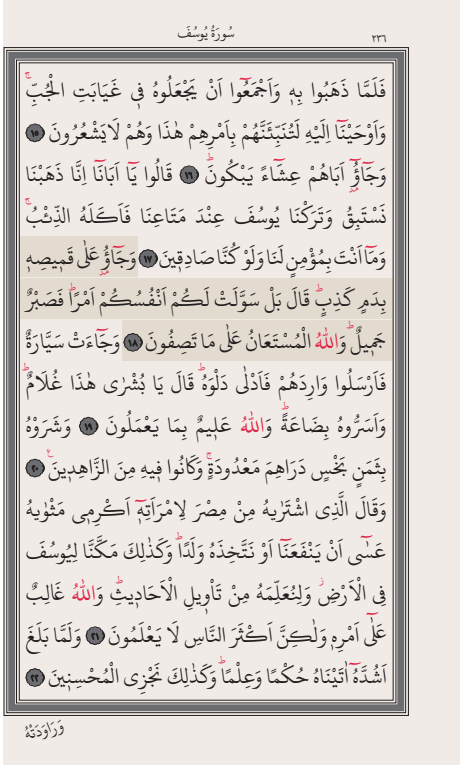 سُورَةُ يُوسُفَ
٢٣٦
فَلَمَّا ذَهَبُوا بِهٖ وَاَجْمَعُٓوا اَنْ يَجْعَلُوهُ فٖى غَيَابَتِ الْجُبِّۚ
وَاَوْحَيْنَٓا اِلَيْهِ لَتُنَبِّئَنَّهُمْ بِاَمْرِهِمْ هٰذَا وَهُمْ لَا يَشْعُرُونَ ١٥
وَجَٓاؤُٓ اَبَاهُمْ عِشَٓاءً يَبْكُونَؕ ١٦ قَالُوا يَٓا اَبَانَٓا اِنَّا ذَهَبْنَا
نَسْتَبِقُ وَتَرَكْنَا يُوسُفَ عِنْدَ مَتَاعِنَا فَاَكَلَهُ الذِّئْبُۚ
وَمَٓا اَنْتَ بِمُؤْمِنٍ لَنَا وَلَوْ كُنَّا صَادِقٖينَ ١٧ وَجَٓاؤُ عَلٰى قَمٖيصِهٖ
بِدَمٍ كَذِبٍؕ قَالَ بَلْ سَوَّلَتْ لَكُمْ اَنْفُسُكُمْ اَمْرًاؕ فَصَبْرٌ
جَمٖيلٌؕ وَاللّٰهُ الْمُسْتَعَانُ عَلٰى مَا تَصِفُونَ ١٨ وَجَٓاءَتْ سَيَّارَةٌ
فَاَرْسَلُوا وَارِدَهُمْ فَاَدْلٰى دَلْوَهُؕ قَالَ يَا بُشْرٰى هٰذَا غُلَامٌؕ
وَاَسَرُّوهُ بِضَاعَةًؕ وَاللّٰهُ عَلٖيمٌ بِمَا يَعْمَلُونَ ١٩ وَشَرَوْهُ
بِثَمَنٍ بَخْسٍ دَرَاهِمَ مَعْدُودَةٍۚ وَكَانُوا فٖيهِ مِنَ الزَّاهِدٖينَࣖ ٢٠
وَقَالَ الَّذِى اشْتَرٰيهُ مِنْ مِصْرَ لِامْرَاَتِهٖٓ اَكْرِمٖى مَثْوٰيهُ
عَسٰٓى اَنْ يَنْفَعَنَٓا اَوْ نَتَّخِذَهُ وَلَدًاؕ وَكَذٰلِكَ مَكَّنَّا لِيُوسُفَ
فِى الْاَرْضِؗ وَلِنُعَلِّمَهُ مِنْ تَاْوٖيلِ الْاَحَادٖيثِؕ وَاللّٰهُ غَالِبٌ
عَلٰٓى اَمْرِهٖ وَلٰكِنَّ اَكْثَرَ النَّاسِ لَا يَعْلَمُونَ ٢١ وَلَمَّا بَلَغَ
اَشُدَّهُٓ اٰتَيْنَاهُ حُكْمًا وَعِلْمًاؕ وَكَذٰلِكَ نَجْزِى الْمُحْسِنٖينَ ٢٢
وَرَاوَدَتْهُ